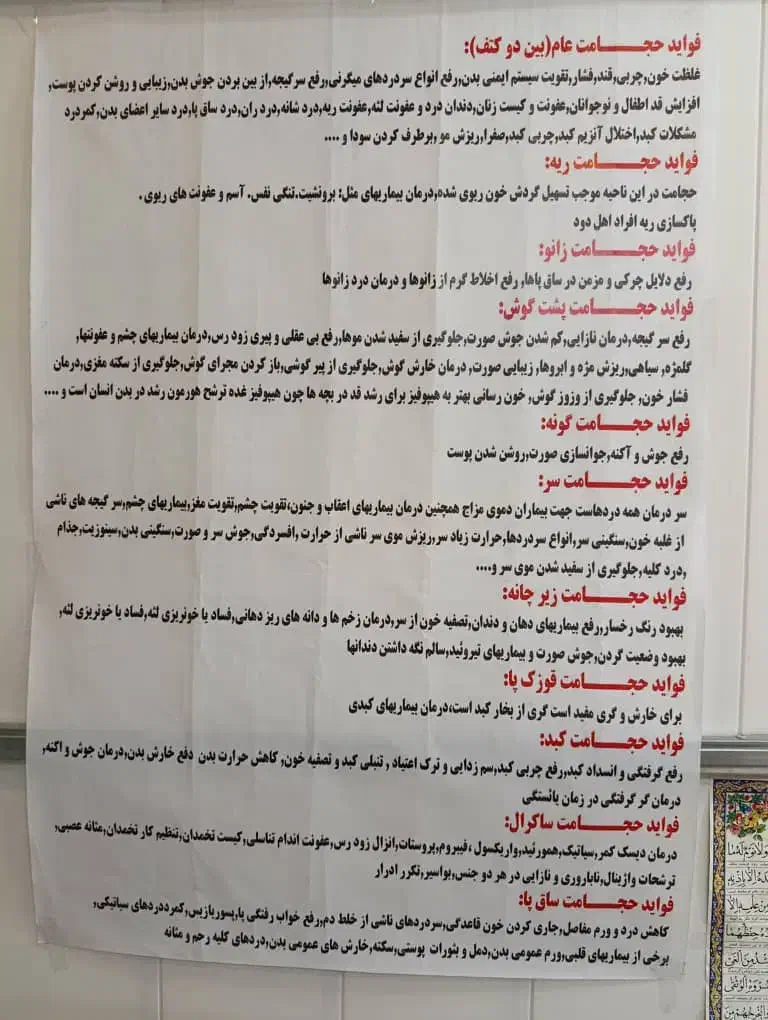 فواید حجـــــامت عام(بین دو کتف):
غلظت خون,چربی,قند,فشار,تقویت سیستم ایمنی بدن,رفع انواع سردردهای میگرنی,رفع سرگیجه,از بین بردن جوش بدن,زیبایی و روشن کردن پوست,
افزایش قد اطفال و نوجوانان,عفونت و کیست زنان,دندان درد و عفونت لثه,عفونت ریه,درد شانه,درد ران,درد ساق پا,درد سایر اعضای بدن,کمردرد
مشکلات کبد,اختلال آنزیم کبد,چربی کبد,صفرا,ریزش مو ,برطرف کردن سودا و ....
فواید حجـــــامت ریه:
حجامت در این ناحیه موجب تسهیل گردش خون ریوی شده,درمان بیماریهای مثل: برونشیت.تنگی نفس. آسم و عفونت های ریوی .
پاکسازی ریه افراد اهل دود
فواید حجـــــامت زانو:
رفع دلایل چرکی و مزمن در ساق پاها, رفع اخلاط گرم از زانوها و درمان درد زانوها
فواید حجـــــامت پشت گوش:
رفع سر گیجه,درمان نازایی,کم شدن جوش صورت,جلوگیری از سفید شدن موها,رفع بی عقلی و پیری زود رس,درمان بیماریهای چشم و عفونتها,
گلمژه, سیاهی,ریزش مژه و ابروها, زیبایی صورت, درمان خارش گوش,جلوگیری از پیر گوشی,باز کردن مجرای گوش,جلوگیری از سکته مغزی,درمان
فشار خون, جلوگیری از وزوز گوش, خون رسانی بهتر به هیپوفیز برای رشد قد در بچه ها چون هیپوفیز غده ترشح هورمون رشد در بدن انسان است و ....
فواید حجـــــامت گونه:
رفع جوش و آکنه,جوانسازی صورت,روشن شدن پوست
فواید حجـــــامت سر:
سر درمان همه دردهاست جهت بیماران دموی مزاج همچنین درمان بیماریهای اعقاب و جنون،تقویت چشم,تقویت مغز,بیماریهای چشم,سر گیجه های ناشی
از غلبه خون,سنگینی سر,انواع سردردها,حرارت زیاد سر,ریزش موی سر ناشی از حرارت ,افسردگی,جوش سر و صورت,سنگینی بدن,سینوزیت,جذام
,درد کلیه,جلوگیری از سفید شدن موی سر و....
فواید حجـــــامت زیر چانه:
بهبود رنگ رخسار,رفع بیماریهای دهان و دندان,تصفیه خون از سر,درمان زخم ها و دانه های ریز دهانی,فساد یا خونریزی لثه,فساد یا خونریزی لثه,
بهبود وضعیت گردن,جوش صورت و بیماریهای تیروئید,سالم نگه داشتن دندانها
فواید حجـــــامت قوزک پا:
برای خارش و گری مفید است گری از بخار کبد است،درمان بیماریهای کبدی
فواید حجـــــامت کبد:
رفع گرفتگی و انسداد کبد,رفع چربی کبد,سم زدایی و ترک اعتیاد , تنبلی کبد و تصفیه خون, کاهش حرارت بدن دفع خارش بدن,درمان جوش و اکنه,
درمان گر گرفتگی در زمان یائسگی
فواید حجـــــامت ساکرال:
درمان دیسک کمر,سیاتیک,هموروئید,واریکسول ,فیبروم,پروستات,انزال زود رس,عفونت اندام تناسلی,کیست تخمدان,تنظیم کار تخمدان,مثانه عصبی,
ترشحات واژینال,ناباروری و نازایی در هر دو جنس,بواسیر,تکرر ادرار
فواید حجـــــامت ساق پا:
کاهش درد و ورم مفاصل,جاری کردن خون قاعدگی,سردردهای ناشی از خلط دم,رفع خواب رفتگی پا,پسوریازیس,کمرددردهای سیاتیکی,
برخی از بیماریهای قلبی,ورم عمومی بدن,دمل و بثورات پوستی,سکته,خارش های عمومی بدن,دردهای کلیه رحم و مثانه